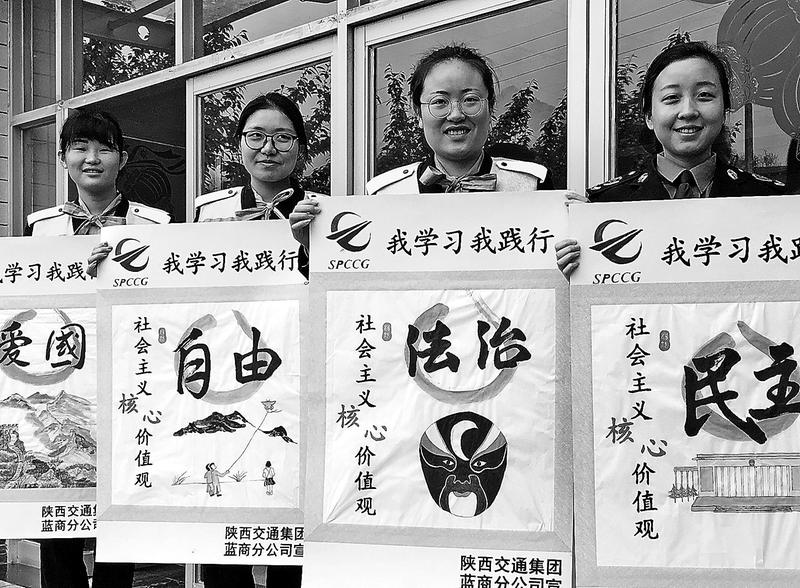 我学习我践行
爱國
陕西交通集
蓝商分公司
SPCCG
我学习我践行
社会主义
核心
价值观
自由
陕西交通集团
蓝商分公司宣
SPCCG
我学习我践行
社会主义
核心
价值观
法治
陕西交通集团
蓝商分公司宣
SPCCG
我学习我践
社会主义
核心
价值观
民主